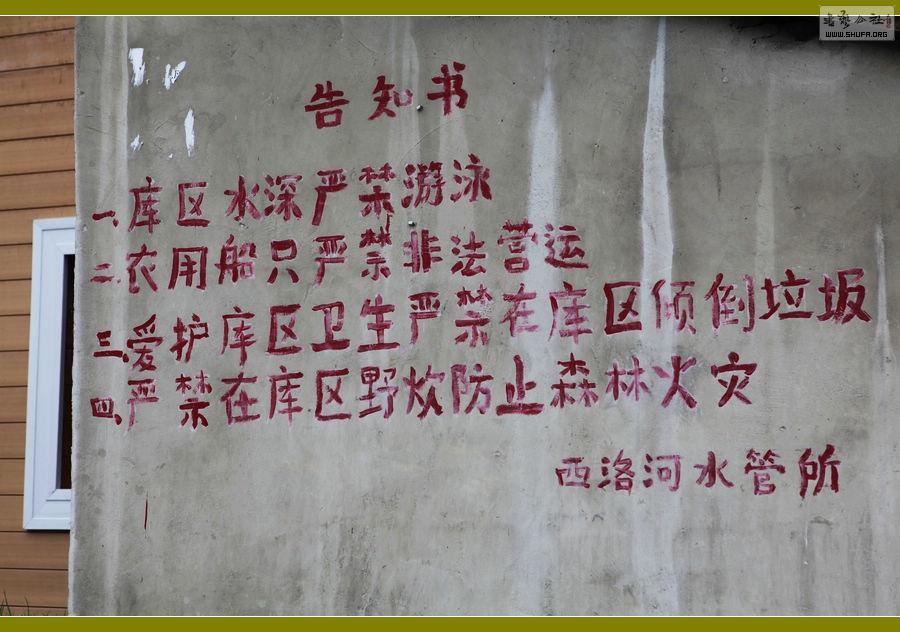 告知书
一、库区水深严禁游泳
二、农用船只严禁非法营运
三、爱护库区卫生严禁在库区倾倒垃圾
四、严禁在库区野炊防止森林火灾
西洛河水管所
书艺公社
WWW.SHUFA.ORG